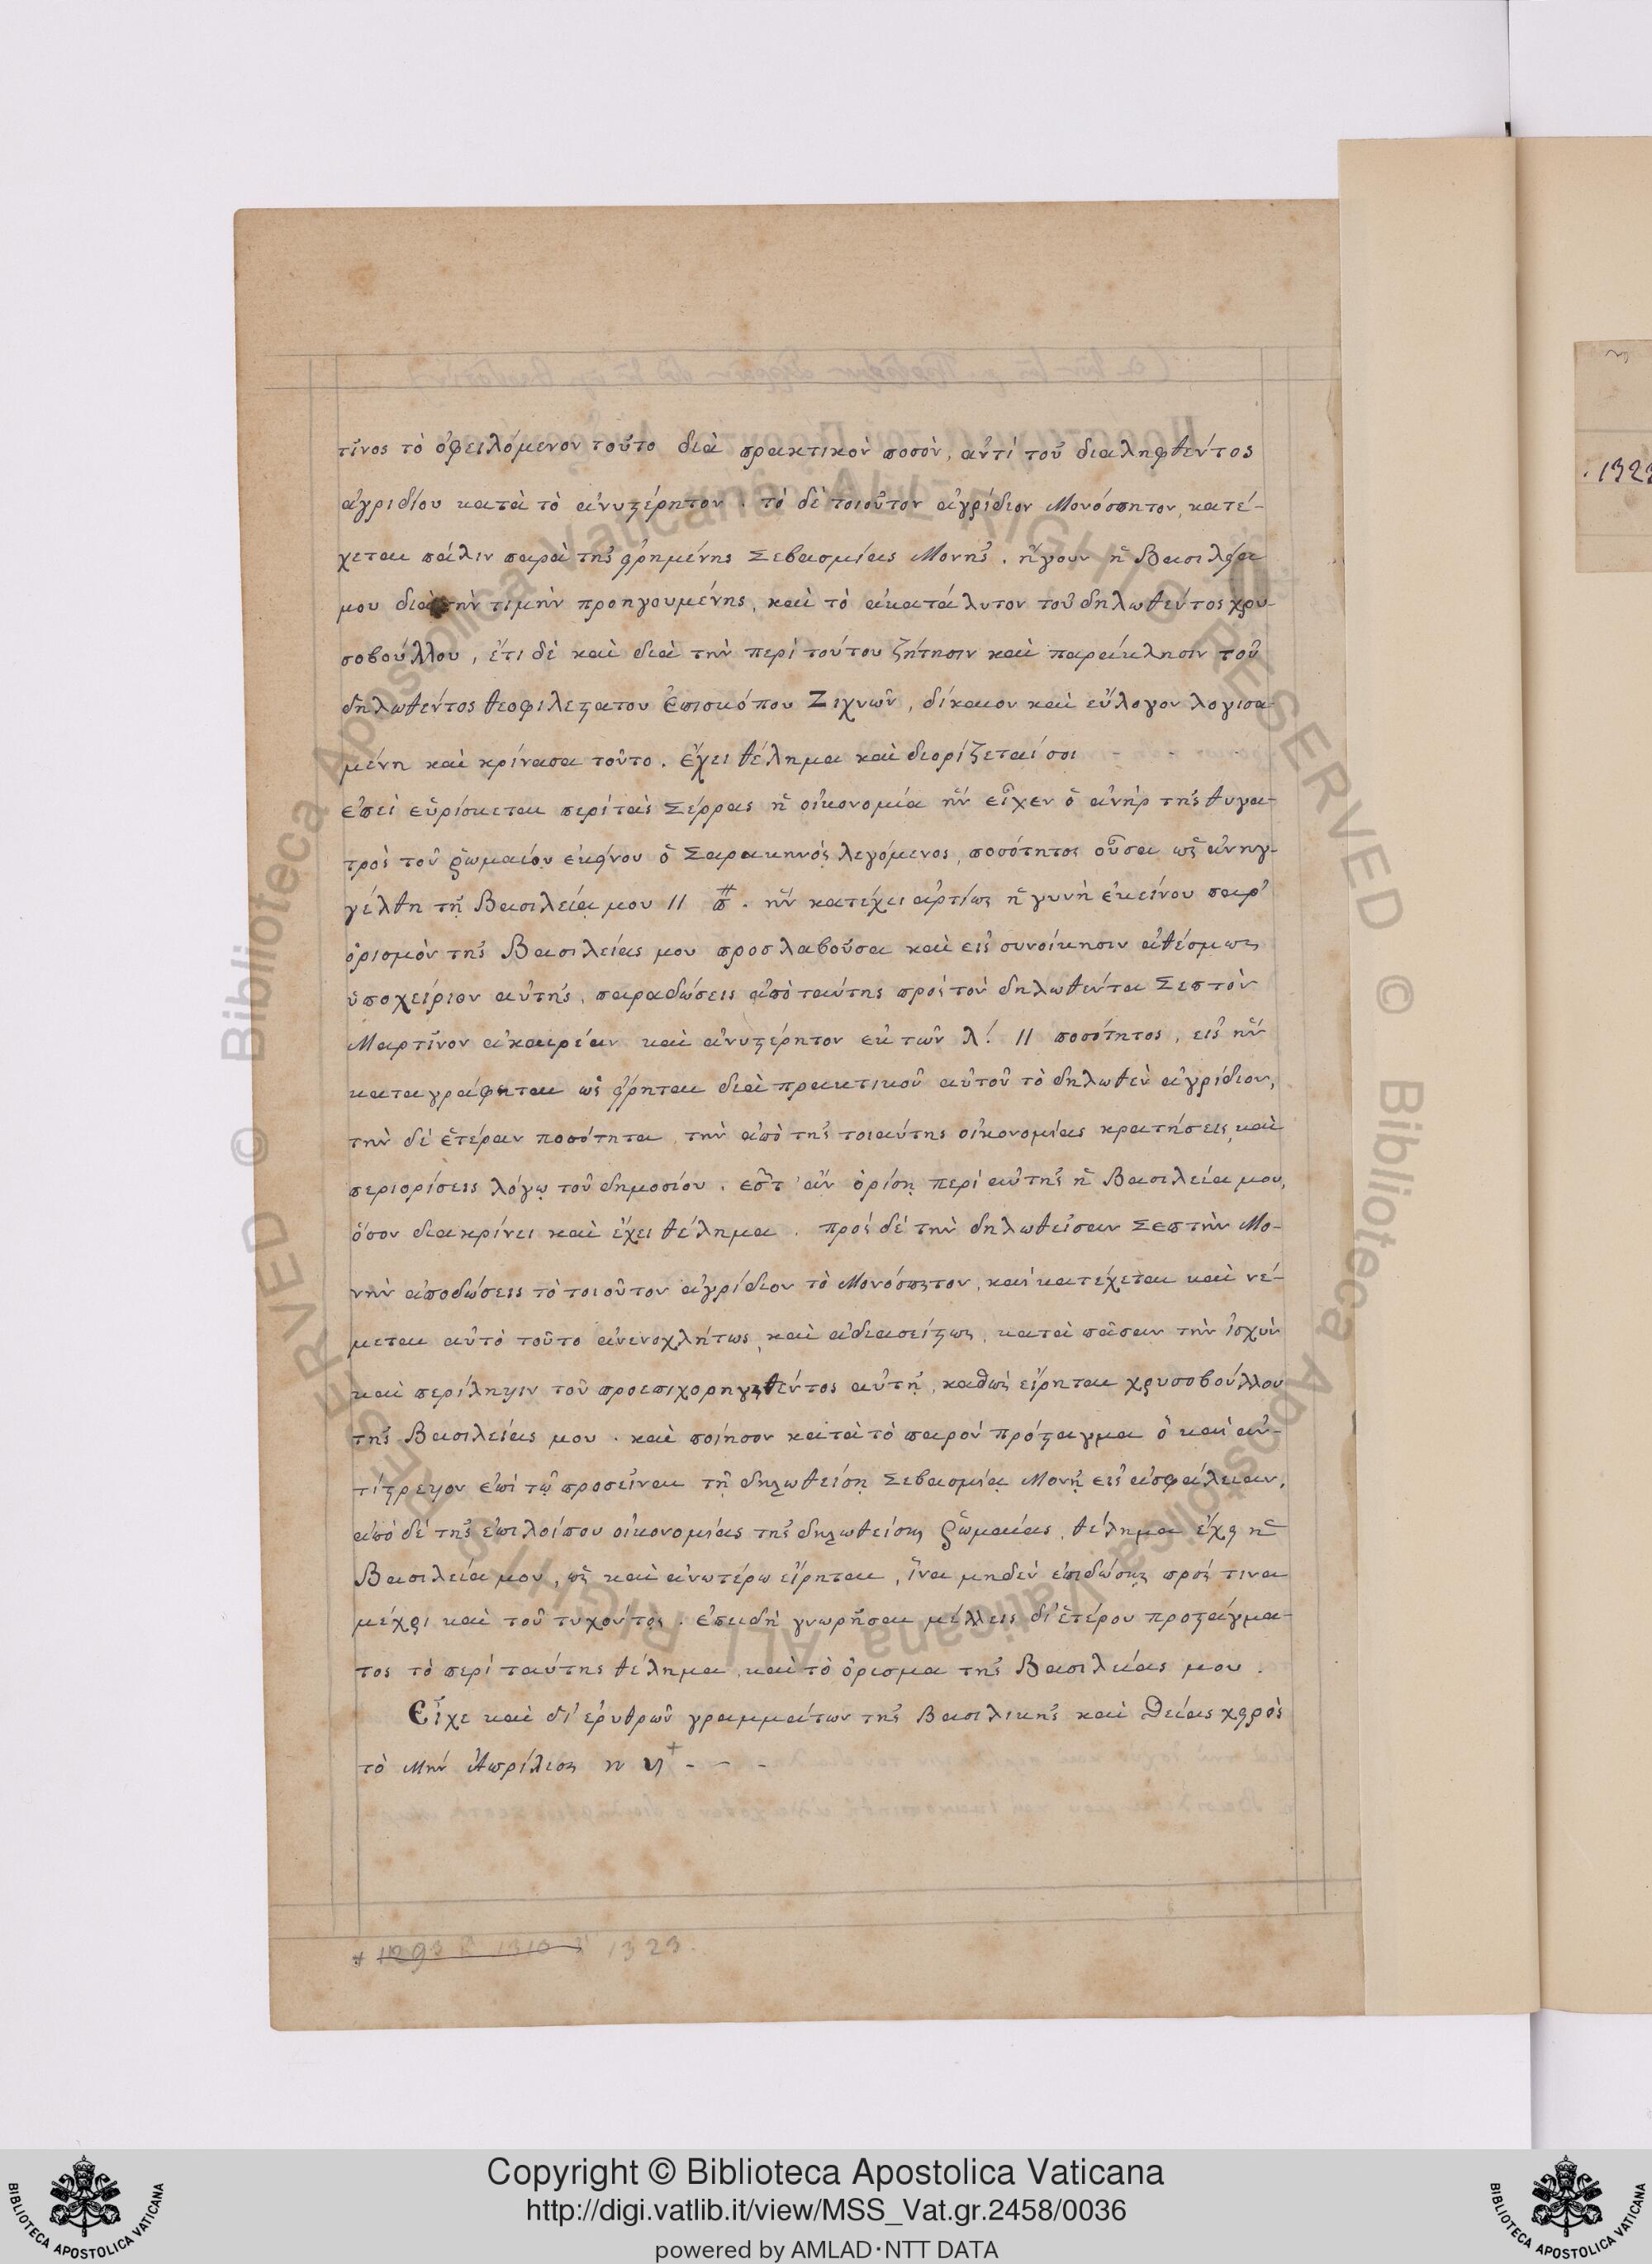 τῖνος τὸ ὀφειλόμενον τοῦτο διὰ πρακτικὸν ποσὸν, ἀντὶ τοῦ διαληφθέντος
ἀγριδίου κατὰ τὸ ἀνυστέρητον. τὸ δὲ τοιοῦτον ἀγρίδιον Μονόσπητον, κατέ-
χεται πάλιν παρὰ τῆς εἰρημένης Σεβασμίας Μονῆς. ἤγουν ἡ Βασιλεία
μου διὰ τὴν τιμὴν προηγουμένης, καὶ τὸ ἀκατάλυτον τοῦ δηλωθέντος χρυ-
σοβούλλου, ἔτι δὲ καὶ διὰ τὴν περὶ τούτου ζήτησιν καὶ παράκλησιν τοῦ
δηλωθέντος θεοφιλεστατου Ἐπισκόπου Ζιχνῶν, δίκαιον καὶ εὔλογον λογισα-
μένη καὶ κρίνασα τοῦτο. ἔχει θέλημα καὶ διορίζεταί σοι - -
ἐπεὶ εὑρίσκεται περὶ τὰς Σέρρας ἡ οἰκονομία ἣν εἶχεν ὁ ἀνὴρ τῆς θυγα-
τρὸς τοῦ ῥωμαίου ἐκείνου ὁ Σαρακηνὸς λεγόμενος, ποσότητος οὖσα ὡς ἀνηγ-
γέλθη τῇ Βασιλείᾳ μου 〃 π. ἣν κατέχει ἀρτίως ἡ γυνὴ ἐκείνου παρ'
ὁρισμὸν τῆς Βασιλείας μου προσλαβοῦσα καὶ εἰς συνοίκησιν ἀθέσμως
ὑποχείριον αὐτῆς, παραδώσεις ἀπὸ ταύτης πρὸς τὸν δηλωθέντα Σεπτὸν
Μαρτῖνον ἀκαιρέαν καὶ ἀνυστέρητον ἐκ τῶν λ! 〃 ποσότητος, εἰς ἣν
καταγράφηται ὡς εἴρηται διὰ πρακτικοῦ αὐτοῦ τὸ δηλωθὲν ἀγρίδιον,
τὴν δὲ ἑτέραν ποσότητα, τὴν ἀπὸ τῆς τοιαύτης οἰκονομίας κρατήσεις, καὶ
περιορίσεις λόγῳ τοῦ δημοσίου. ἐστ' ἂν ὁρίσῃ περὶ αὐτῆς ἡ Βασιλεία μου,
ὅσον διακρίνει καὶ ἔχει θέλημα. πρὸς δὲ τὴν δηλωθεῖσαν Σεπτὴν Μο-
νὴν ἀποδώσεις τὸ τοιοῦτον ἀγρίδιον τὸ Μονόσπητον, καὶ κατέχεται καὶ νέ-
μεται αὐτὸ τοῦτο ἀνενοχλήτως, καὶ ἀδιασείστως, κατὰ πᾶσαν τὴν ἰσχὺν
καὶ περίληψιν τοῦ προεπιχορηγηθέντος αὐτῇ, καθὼς εἴρηται χρυσοβούλλου
τῆς Βασιλείας μου. καὶ ποίησον κατὰ τὸ παρὸν πρόσταγμα ὃ καὶ ἀν-
τίστρεψον ἐπὶ τῷ προσεῖναι τῇ δηλωθείσῃ Σεβασμίᾳ Μονῇ εἰς ἀσφάλειαν,
ἀπὸ δὲ τῆς ἐπιλοίπου οἰκονομίας τῆς δηλωθείσης ῥωμαίας, θέλημα ἔχει ἡ
Βασιλεία μου, ὡς καὶ ἀνωτέρω εἴρηται, ἵνα μηδὲν ἐπιδώσῃς πρός τινα
μέχρι καὶ τοῦ τυχόντος. ἐπειδὴ γνωρῆσαι μέλλεις δι' ἑτέρου προστάγμα-
τος τὸ περὶ ταύτης θέλημα, καὶ τὸ ὅρισμα τῆς Βασιλείας μου.
Εἶχε καὶ δι' ἐρυθρῶν γραμμάτων τῆς Βασιλικῆς καὶ θείας χειρὸς
τὸ Μὴν Ἀπρίλιος
1323.
. 1323
Copyright © Biblioteca Apostolica Vaticana
http://digi.vatlib.it/view/MSS_Vat.gr.2458/0036
powered by AMLAD·NTT DATA
BIBLIOTECA APOSTOLICA VATICANA
BIBLIOTECA APOSTOLICA VATICANA